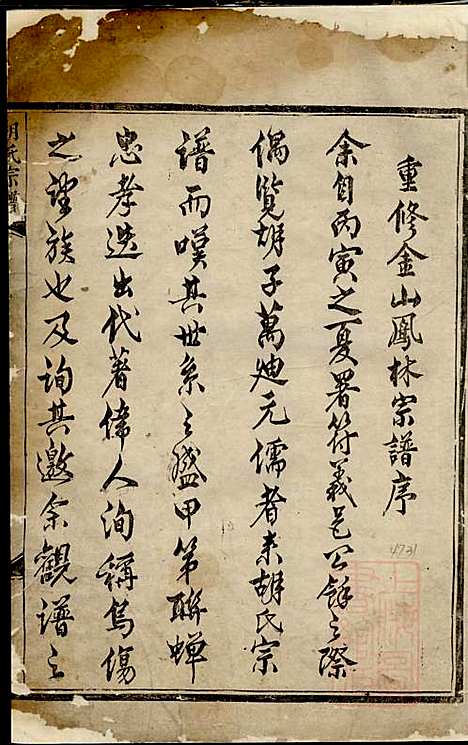 重修金山鳳林宗譜序
余自丙寅之夏署符義邑公餘之際
偶覽胡子萬迪元儒者素胡氏宗
譜而嘆其世系之盛甲第聯蟬
忠孝迭出代著偉人洵稱烏傷
之望族也及詢其邀余觀譜之
胡氏宗譜
4731